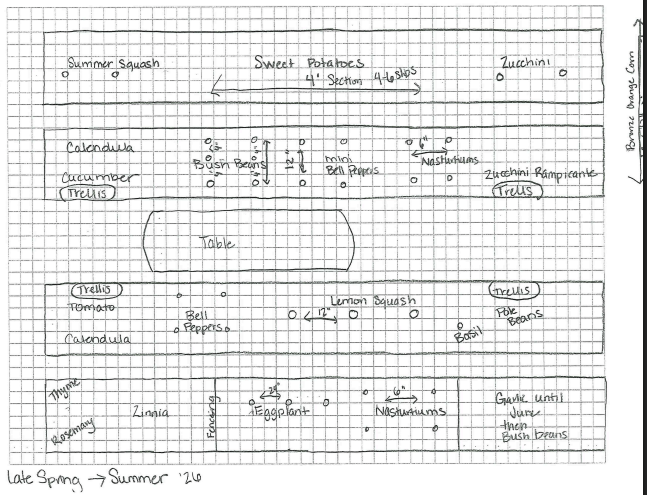 Summer Squash
Sweet Potatoes
4' Section 4-6 slips
Zucchini
Bronze Orange Corn
Calendula
Cucumber
Trellis
Bush Beans
12"
mini
Bell Peppers
6"
Nasturtiums
Zucchini Rampicante
Trellis
Table
Trellis
Tomato
Calendula
Bell
Peppers
Lemon Squash
12"
Basil
Trellis
Pole
Beans
Thyme
Rosemary
Zinnia
Fencing
24"
Eggplant
6"
Nasturtiums
Garlic until
June
then
Bush beans
Late Spring → Summer '26